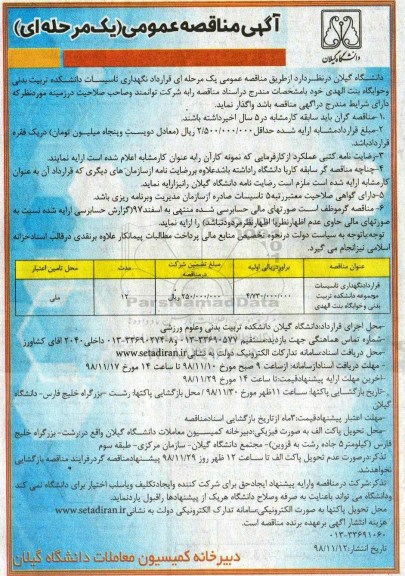 آگهی مناقصه عمومی (یک مرحله ای)
دانشگاه گیلان
دانشگاه گیلان درنظردارد ازطریق مناقصه عمومی یک مرحله ای قرارداد نگهداری تاسیسات دانشکده تربیت بدنی
وخوابگاه بنت الهدی خود بامشخصات مندرج دراسناد مناقصه رابه شرکت توانمند وصاحب صلاحیت درزمینه موردنظرکه
دارای شرایط مندرج درآگهی مناقصه باشد واگذار نماید.
۱-مناقصه گران باید سابقه کارمشابه در۵ سال اخیرداشته باشند.
۲-مبلغ قراردادمشابه ارایه شده حداقل ۲/۵۰۰/۰۰۰/۰۰۰ ریال (معادل دویست وپنجاه میلیون تومان) دریک فقره
قراردادباشد.
۳-رضایت نامه کتبی عملکرد ازکارفرمایی که نمونه کارآن رابه عنوان کارمشابه اعلام شده است ارایه نمایند.
۴-چنانچه مناقصه گر سابقه کاربا دانشگاه راداشته باشدعلاوه بررضایت نامه ازسازمان های دیگری که قرارداد آن به عنوان
کارمشابه ارایه شده است ملزم است رضایت نامه دانشگاه گیلان رانیزارایه نماید.
۵-دارای گواهی صلاحیت معتبررتبه۵ تاسیسات صادره ازسازمان مدیریت وبرنامه ریزی باشد.
۶-مناقصه گرموظف است صورتهای مالی حسابرسی شده منتهی به اسفند۹۷(گزارش حسابرسی ارایه شده نسبت به
صورتهای مالی حاوی عدم اظهارنظریا اظهارنظرمردودنباشد) را ارایه نماید.
توجه:باتوجه به سیاست دولت درنحوه تخصیص منابع مالی پرداخت مطالبات پیمانکار علاوه برنقدی درقالب اسنادخزانه
اسلامی نیزانجام می گیرد.
عنوان مناقصه
برآوردریالی اولیه
مبلغ تضمین شرکت
درمناقصه
مدت
محل تامین اعتبار
قراردادنگهداری تاسیسات
مجموعه دانشکده تربیت
بدنی وخوابگاه بنت الهدی
۴/۷۳۰/۰۰۰/۰۰۰
۲۵۰/۰۰۰/۰۰۰ ریال
۱۲
ملی
ParsNamadData
-محل اجرای قرارداد:دانشگاه گیلان دانشکده تربیت بدنی وعلوم ورزشی
-شماره تماس هماهنگی جهت بازدید:مستقیم ۳۳۶۹۰۵۷۷-۰۱۳ و۸-۳۳۶۹۰۲۷۴-۰۱۳ داخلی ۲۰۴۰ آقای کشاورز
-محل دریافت اسناد:سامانه تدارکات الکترونیک دولت به نشانی www.setadiran.ir
- مهلت دریافت اسنادازسامانه: ازساعت ۹ صبح مورخ ۹۸/۱۱/۱۰ تا ساعت ۱۴ مورخ ۹۸/۱۱/۱۷
-آخرین مهلت ارایه پیشنهادقیمت:تا ساعت ۱۴ مورخ ۹۸/۱۱/۲۹
-تاریخ بازگشایی پاکتها: ساعت ۱۱ظهر مورخ ۹۸/۱۱/۳۰ / محل بازگشایی پاکتها: رشت –بزرگراه خلیج فارس- دانشگاه
گیلان
-مهلت اعتبار پیشنهادقیمت:۳ماه ازتاریخ بازگشایی اسنادمناقصه
-محل تحویل پاکت الف به صورت فیزیکی:دبیرخانه کمیسیون معاملات دانشگاه گیلان واقع دررشت- بزرگراه خلیج
فارس (کیلومتر۵ جاده رشت به قزوین)- مجتمع دانشگاه گیلان- سازمان مرکزی- طبقه سوم
تذکر۱:درصورت عدم تحویل پاکت الف تا ساعت ۱۲ ظهر روز ۹۸/۱۱/۲۹ پیشنهادمناقصه گردرفرایند مناقصه بازگشایی
نخواهدشد.
تذکر:شرکت درمناقصه وارایه پیشنهاد ایجادحق برای شرکت کننده وایجادتکلیف ویاسلب اختیار برای دانشگاه نمی کند
ودانشگاه می تواند باعنایت به صرفه وصلاح دانشگاه هریک از پیشنهادها راقبول یاردنماید.
محل تحویل پاکتها به صورت الکترونیکی:سامانه تدارک الکترونیکی دولت به نشانی www.setadiran.ir
هزینه انتشار آگهی برعهده برنده مناقصه است.
۰۱۳-۳۳۶۹۱۰۶۰
تاریخ انتشار:۹۸/۱۱/۱۲
دبیرخانه کمیسیون معاملات دانشگاه گیلان